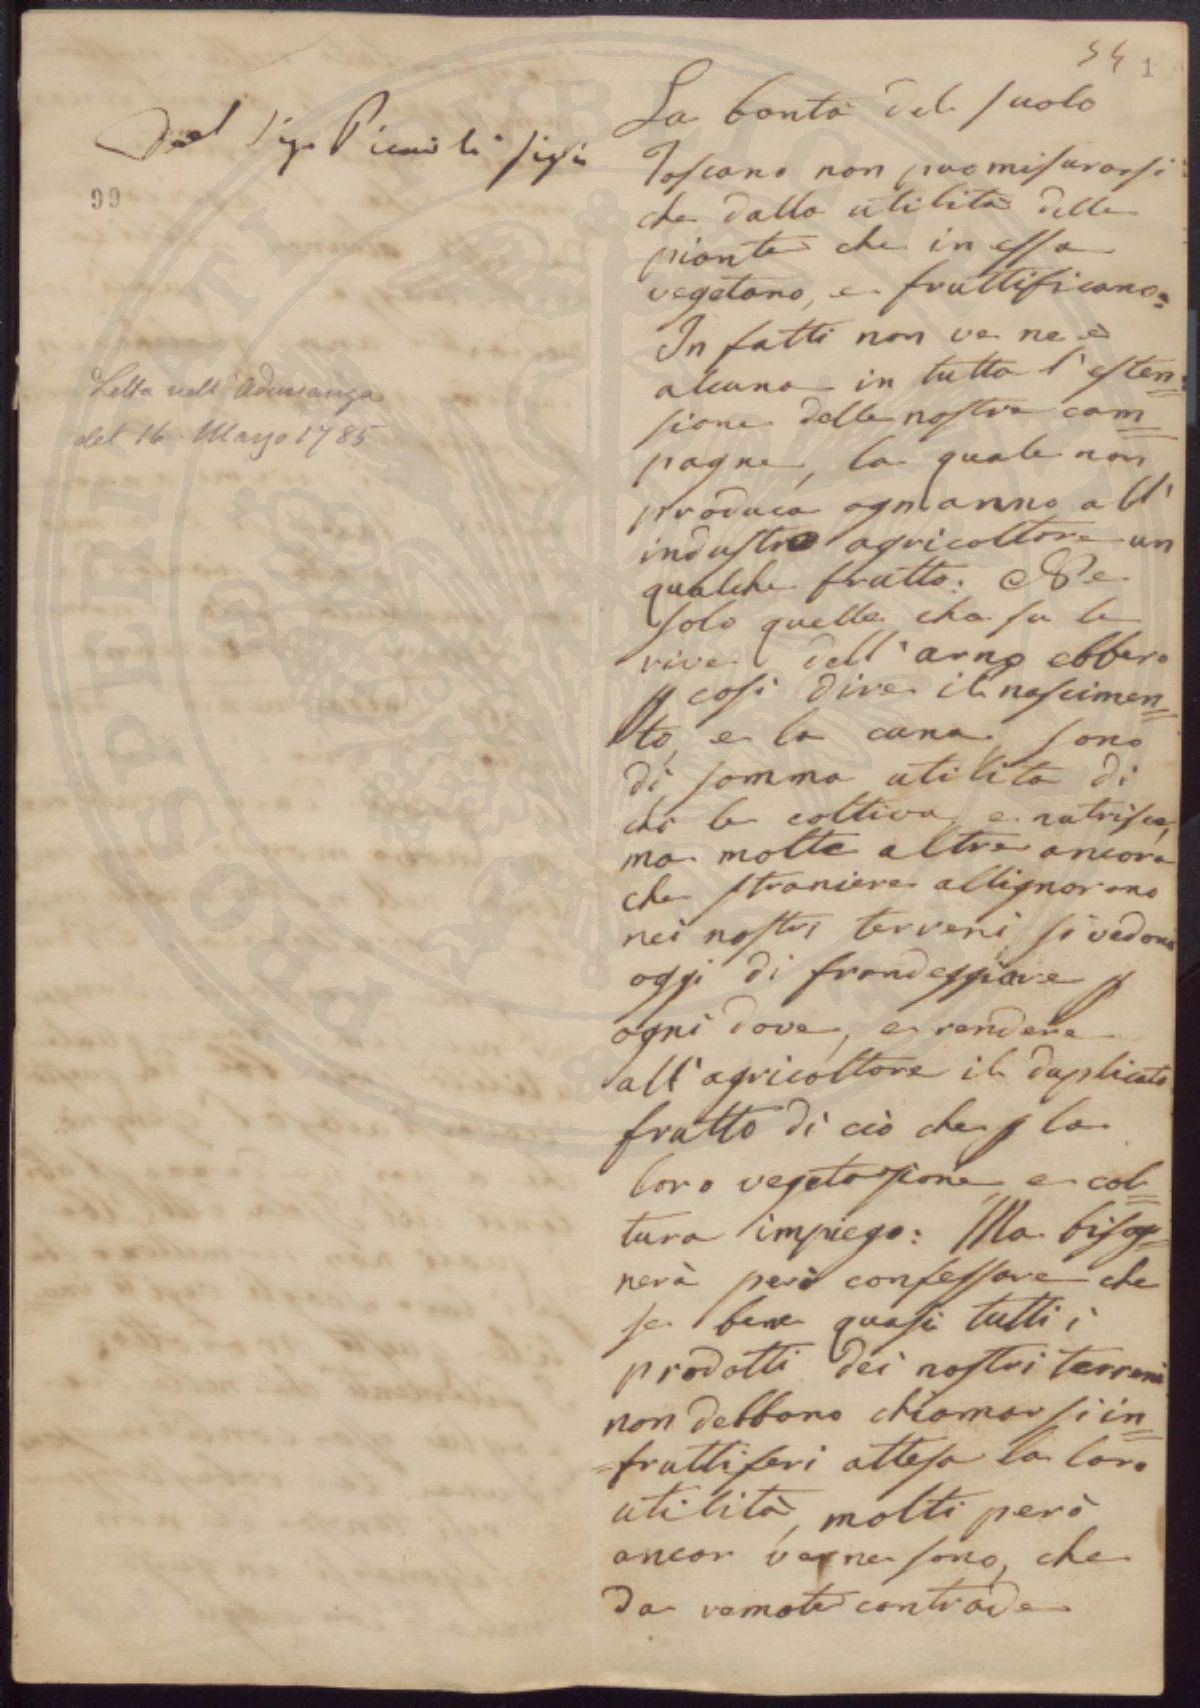 54 1
Del Sig.
99
Letta nell'Adunanza
del 16 Marzo 1785
La bontà del suolo
Toscano non può misurarsi
che dalla utilità delle
piante che in essa
vegetano, e fruttificano.
In fatti non ve ne è
alcuna in tutta l'esten=
sione delle nostre cam=
pagne, la quale non
produca ogni anno all'
industre agricoltore un
qualche frutto: Ne
solo quelle che su le
rive dell'arno ebbero
p così dire il nascimen=
to, e la cuna, sono
di somma utilità di
chi le coltiva, e nutrisce,
ma molte altre ancora
che straniere allignorono
nei nostri terreni si vedono
oggi di frondeggiare p
ogni dove, e rendere
all'agricoltore il duplicato
frutto di ciò che p la
loro vegetazione, e col=
tura impiego: Ma bisog=
nerà però confessare che
se bene quasi tutti i
prodotti dei nostri terreni
non debbano chiamarsi in=
=fruttiferi attesa la loro
utilità, molti però
ancor ve ne sono, che
da remote contrade
PROSPERITATI PUBLICAE